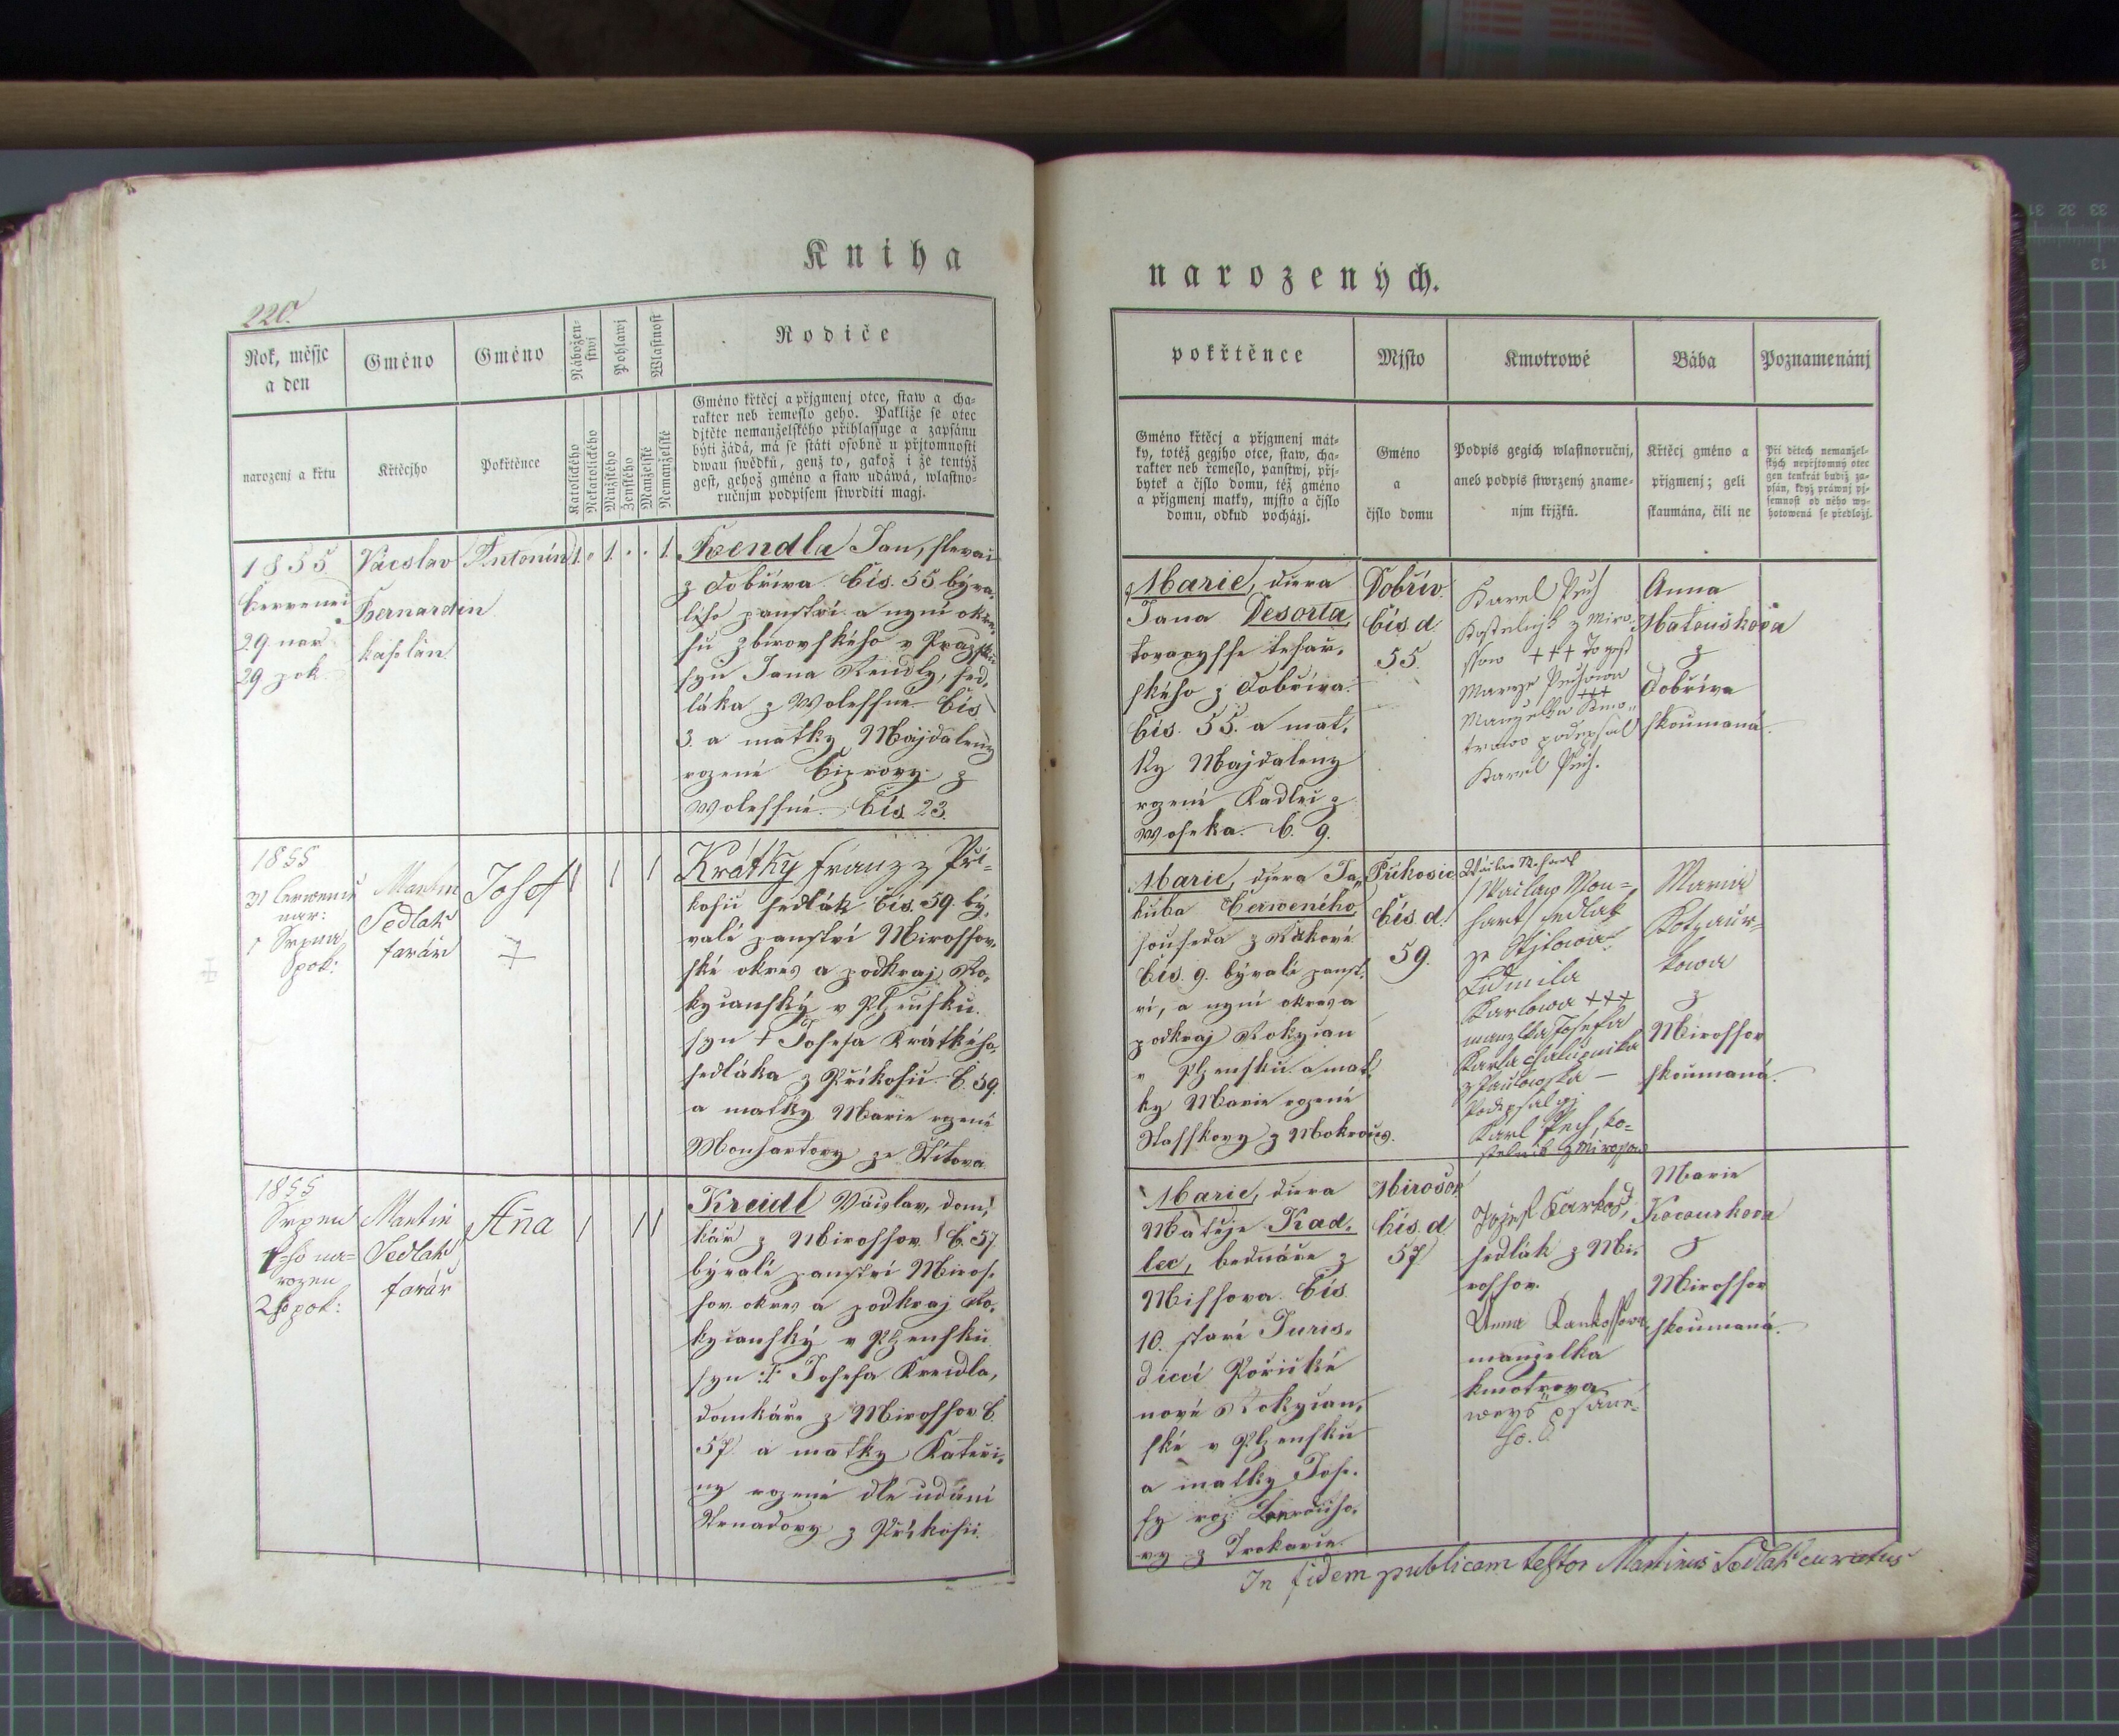 Kniha
220.
Rok, měsjc
a den
Gméno
Gméno
Nábožen-
stwj
Pohlawj
Wlastnost
Rodiče
narozenj a křtu
Křtěcjho
Pokřtěnce
Katolického
Nekatolického
Mužského
Ženského
Manželské
Nemanželské
Gméno křtěcj a přjgmenj otce, staw a cha-
rakter neb řemeslo geho. Pakliže se otec
djtěte nemanželského přihlassuge a zapsánu
býti žádá, má se státi osobně u přjtomnosti
dwau swědků, genž to, gakož i že tentýž
gest, gehož gméno a staw udáwá, wlastno-
ručnjm podpisem stwrditi magj.
1855
Července
29. nar.
29 pok.
Václav
Bernardin
kaplan
Antonín
1.
1.
1.
Jan, slevač
z Dobříva čís. 55 býva,
lého panství a nyní okre,
su Zbirovského v Pražsku
syn Jana Rendly, sed,
láka z Wolessné čís.
3. a matky Majdaleny
rozené z
Wolessné čís. 23.
1855
31 Července
nar:
1 Srpna
pok:
Martin
Sedlak
farár
Josef
+
1
1
1
Krátky Franz z Pří-
kosic sedlák čís. 59. bý,
valé panství Mirossov,
ské okres a podkraj Ro,
kycanský v Plzeňsku.
syn + Josefa Krátkého,
sedláka z Příkosic č. 59.
a matky Marie rozené
Monhartovy ze Štítova
1855
Srpen
1-ho na-
rozen
2ho pok:
Martin
Sedlak
farár
Aña
1
1
1
Kreidl Václav, dom,
kár z Mirossov č. 57.
bývalé panství Miros,
sov okres a podkraj Ro,
kycanský v Plzeňsku
syn + Josefa Kreidla,
domkáře z Mirossov č.
57. a matky Kateři,
ny rozené dle udání
Strnadovy z Příkosic.
narozených.
pokřtěnce
Mjsto
Kmotrowé
Bába
Poznamenánj
Gméno křtěcj a přjgmenj mát-
ky, totéž gegjho otce, staw, cha-
rakter neb řemeslo, panstwj, přj-
bytek a čjslo domu, též gméno
a přjgmenj matky, mjsto a čjslo
domu, odkud pocházj.
Gméno
a
čjslo domu
Podpis gegich wlastnoručnj,
aneb podpis stwrzený zname-
njm křjžků.
Křtěcj gméno a
přjgmenj; geli
skaumána, čili ne
Při dětech nemanžel-
ských nepřjtomný otec
gen tenkrát budiž za-
psán, když práwnj pj-
semnost od něho wy-
hotowená se předložj.
Marie, dcera
Jana Desorta
tovaryšše tesař,
ského z Dobříva
čís. 55. a mat,
ky Majdaleny
rozené Kadlec z
Woseka č. 9.
Dobřív
čís d.
55.
Karel Pech
Kostelnjk z Miro-
ssow +++ To gest
Marye Pechowa
+++
Manzelka Kmo-
trowo podepsal
Karel Pech.
Anna
Matouskova
z
Dobříva
skoumaná.
Marie, dcera Ja,
kuba Červeného
souseda z Rakové
čís. 9. bývalé panst,
ví, a nyní okres a
podkraj Rokycan
v Plzeňsku a mat,
ky Marie rozené
z Mokrous.
Příkosic
čís d.
59.
Waclaw Mon-
hart sedlak
ze Stjtowa
Ludmila
Karlowa +++
manzelka Josefa
Karla chalupnika
z Paulowska —
Podepsal gj
Karl Pech, ko-
stelnik z Mirossow
Maria
Kotzaur-
kowa
z
Mirossov
skoumaná.
Marie, dcera
Matěje Kad,
lec, bednáře z
Missova čís.
10. staré Juris,
dicci Pořické
nové Rokycan,
ské v Plzeňsku
a matky Jose,
fy roz.
vy z Trokavce.
Mirosov
čís. d.
57
Josef
sedlák z Mi,
rossov.
Anna
manzelka
kmotrova
weys psané-
ho.
Marie
Kocourkova
z
Mirossov
skoumaná.
In fidem publicam testor Martinus Sedlak curatus